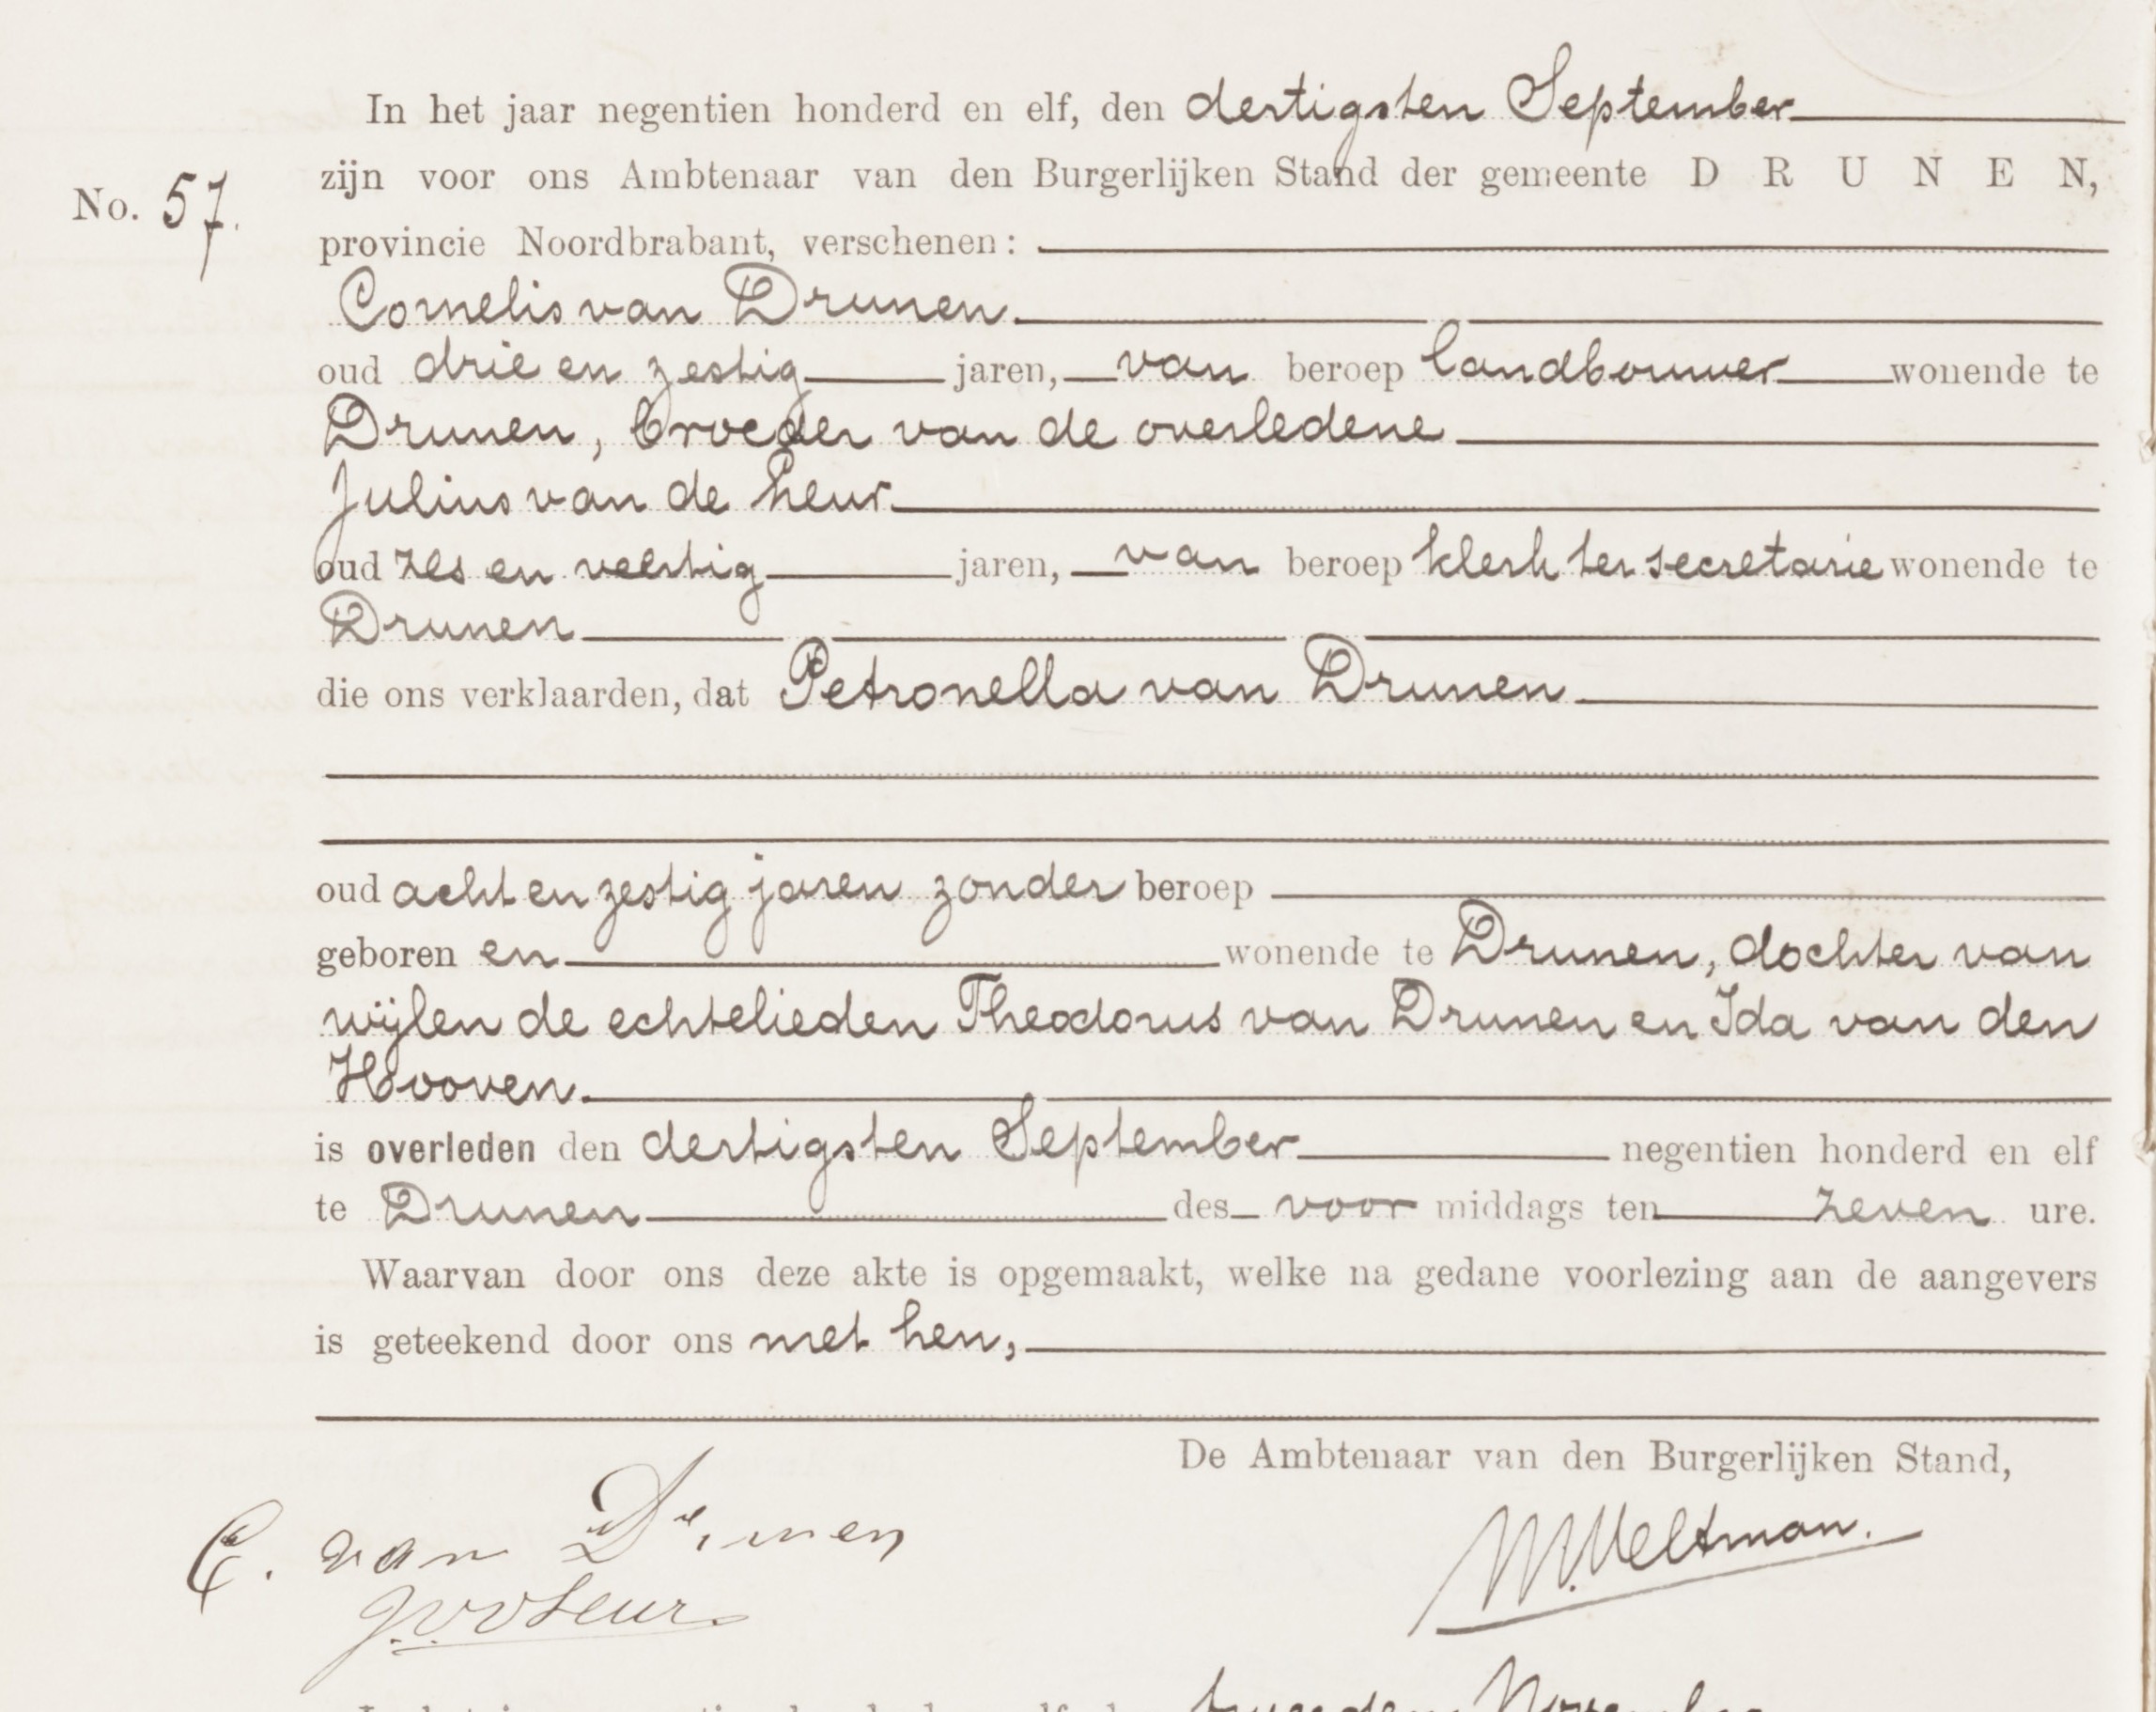 In het jaar negentien honderd en elf, den dertigsten September
zijn voor ons Ambtenaar van den Burgerlijken Stand der gemeente D R U N E N,
No. 57.
provincie Noordbrabant, verschenen:
Cornelis van Drunen.
oud drie en zestig jaren, van beroep landbouwer wonende te
Drunen, broeder van de overledene
Julius van de Leur
oud zes en veertig jaren, van beroep klerk ter secretarie wonende te
Drunen
die ons verklaarden, dat Petronella van Drunen
oud acht en zestig jaren zonder beroep
geboren en wonende te Drunen, dochter van
wijlen de echtelieden Theodorus van Drunen en Ida van den
Hooven.
is overleden den dertigsten September negentien honderd en elf
te Drunen des voor middags ten zeven ure.
Waarvan door ons deze akte is opgemaakt, welke na gedane voorlezing aan de aangevers
is geteekend door ons met hen,
De Ambtenaar van den Burgerlijken Stand,
C. van Drunen
M. Veltman.
tweeden November